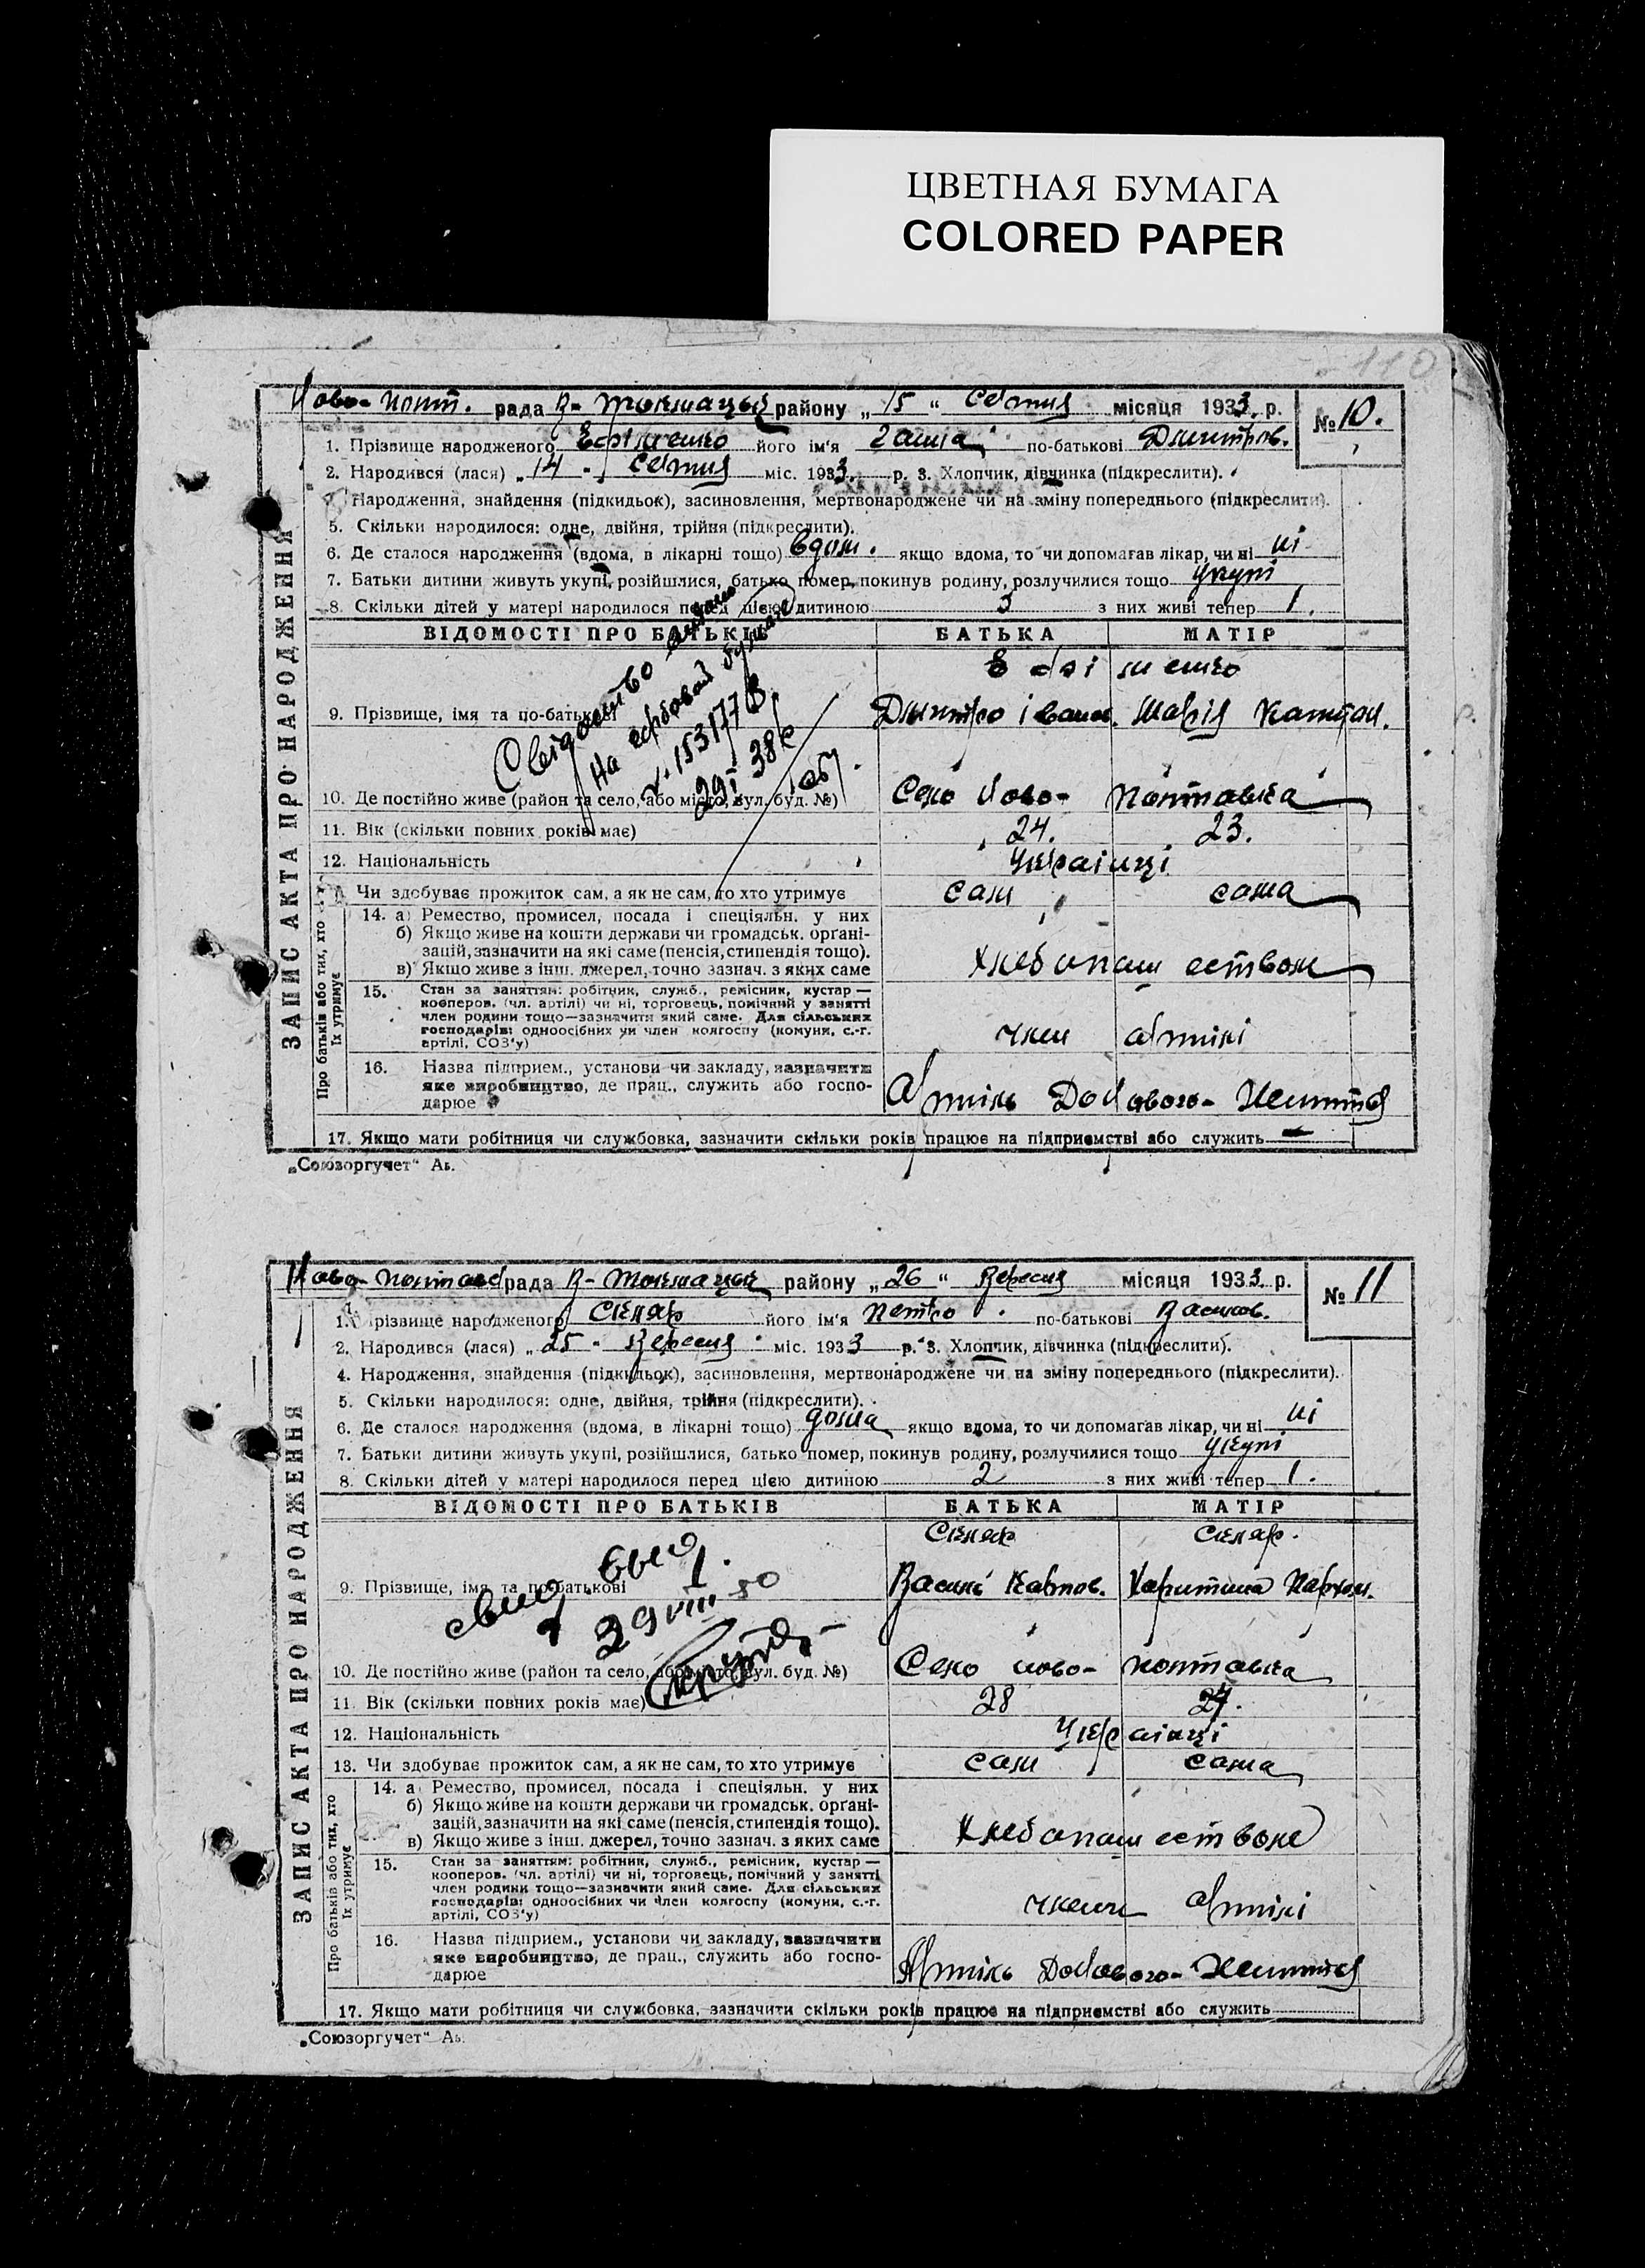 ЦВЕТНАЯ БУМАГА
COLORED PAPER
110
Ново-Полт. рада В-Токмацьк району „15“ Серпня місяця 1933. р. № 10.
1. Прізвище народженого Єфіменко його ім'я Ганна по-батькові Дмитров.
2. Народився (лася) „14“ Серпня міс. 1933. р. 3. Хлопчик, дівчинка (підкреслити).
Народження, знайдення (підкидьок), засиновлення, мертвонароджене чи на зміну попереднього (підкреслити).
5. Скільки народилося: одне, двійня, трійня (підкреслити).
6. Де сталося народження (вдома, в лікарні тощо) вдом. якщо вдома, то чи допомагав лікар, чи ні ні
7. Батьки дитини живуть укупі, розійшлися, батько помер, покинув родину, розлучилися тощо укупі
8. Скільки дітей у матері народилося перед цією дитиною 3 з них живі тепер 1.
ЗАПИС АКТА ПРО НАРОДЖЕННЯ
ВІДОМОСТІ ПРО БАТЬКІВ БАТЬКА МАТІР
Єфіменко
9. Прізвище, імя та по-батькові Дмитро Іванов. Марія
Свідоцтво
на гербовой бумаге
10. Де постійно живе (район та село, або місто, вул. буд. №) Село Ново-Полтавка
11. Вік (скільки повних років має) 24. 23.
12. Національність Українці
Чи здобуває прожиток сам, а як не сам, то хто утримує сам сама
Про батьків або тих, хто їх утримує
14. а) Ремество, промисел, посада і спеціяльн. у них
б) Якщо живе на кошти держави чи громадськ. орґані-
зацій, зазначити на які саме (пенсія, стипендія тощо).
в) Якщо живе з інш. джерел, точно зазнач. з яких саме
Хлебопашеством
15. Стан за заняттям: робітник, служб., ремісник, кустар —
кооперов. (чл. артілі) чи ні, торговець, помічний у занятті
член родини тощо—зазначити який саме. Для сільських
господарів: одноосібних чи член колгоспу (комуни, с.-г.
артілі, СОЗ'у)
член артілі
16. Назва підприєм., установи чи закладу, зазначити
яке виробництво, де прац., служить або госпо-
дарює
Артіль
17. Якщо мати робітниця чи службовка, зазначити скільки років працює на підприємстві або служить —
„Союзоргучет“ Аь.
Ново-Полтавс рада В-Токмацьк району „26“ Вересня місяця 1933. р. № 11
1. Прізвище народженого Скляр його ім'я Петро по-батькові Васильов.
2. Народився (лася) „25“ Вересня міс. 1933 р. 3. Хлопчик, дівчинка (підкреслити).
4. Народження, знайдення (підкидьок), засиновлення, мертвонароджене чи на зміну попереднього (підкреслити).
5. Скільки народилося: одне, двійня, трійня (підкреслити).
6. Де сталося народження (вдома, в лікарні тощо) дома якщо вдома, то чи допомагав лікар, чи ні ні
7. Батьки дитини живуть укупі, розійшлися, батько помер, покинув родину, розлучилися тощо укупі
8. Скільки дітей у матері народилося перед цією дитиною 2 з них живі тепер 1.
ЗАПИС АКТА ПРО НАРОДЖЕННЯ
ВІДОМОСТІ ПРО БАТЬКІВ БАТЬКА МАТІР
Скляр Скляр.
9. Прізвище, імя та по-батькові Василь Карпов. Харитина Пархом.
29 VIII 50
10. Де постійно живе (район та село, або місто, вул. буд. №) Село Ново-Полтавка
11. Вік (скільки повних років має) 28 27.
12. Національність Українці
13. Чи здобуває прожиток сам, а як не сам, то хто утримує сам сама
Про батьків або тих, хто їх утримує
14. а Ремество, промисел, посада і спеціяльн. у них
б) Якщо живе на кошти держави чи громадськ. орґані-
зацій, зазначити на які саме (пенсія, стипендія тощо).
в) Якщо живе з інш. джерел, точно зазнач. з яких саме
Хлебопашеством
15. Стан за заняттям: робітник, служб., ремісник, кустар —
кооперов. (чл. артілі) чи ні, торговець, помічний у занятті
член родини тощо—зазначити який саме. Для сільських
господарів: одноосібних чи член колгоспу (комуни, с.-г.
артілі, СОЗ'у)
члени артілі
16. Назва підприєм., установи чи закладу, зазначити
яке виробництво, де прац., служить або госпо-
дарює
Артіль
17. Якщо мати робітниця чи службовка, зазначити скільки років працює на підприємстві або служить
„Союзоргучет“ Аь.